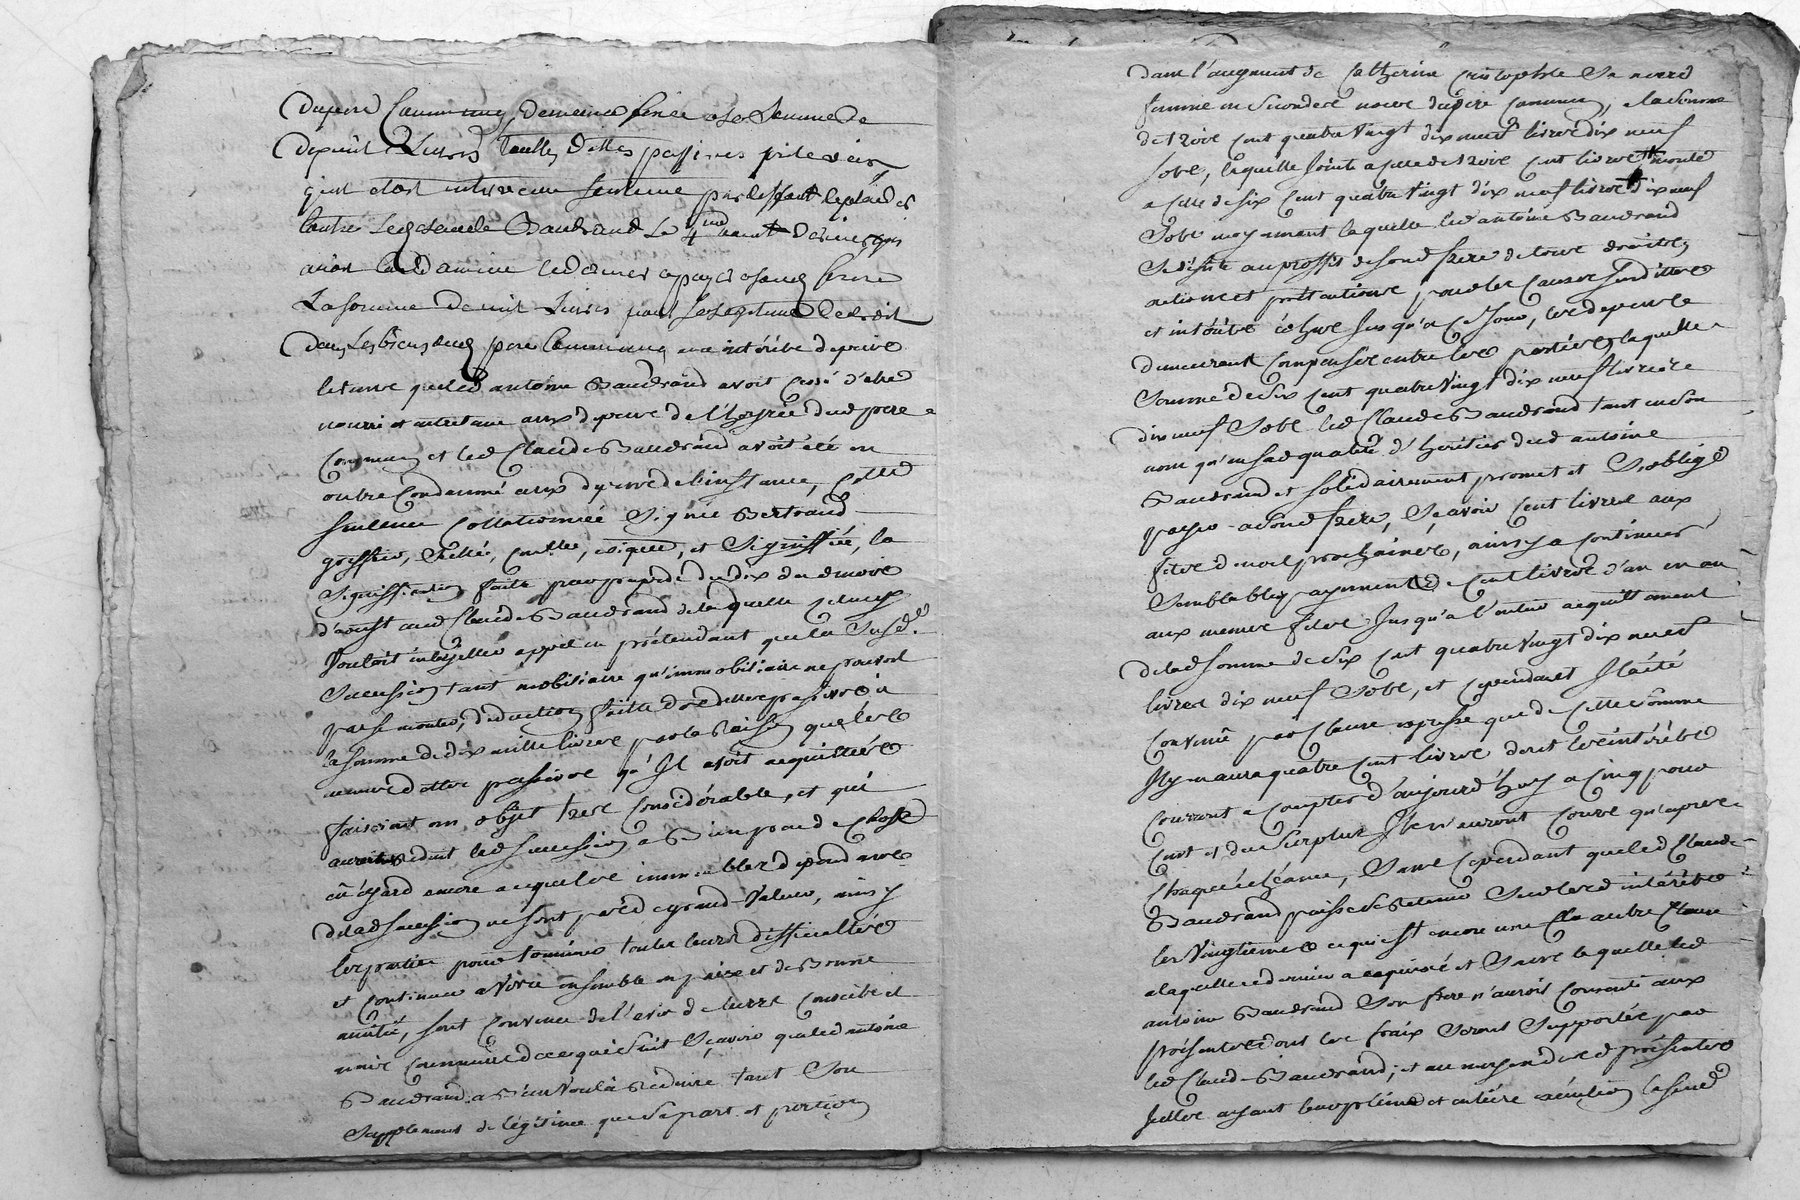 dupere Commung demeura fixée a la Somme de
dix mil Livres toutes dettes passives prelevées
qu'il etoit intervenu sentence par deffaut
contre led Claude Baudrand Le 4
led antoine
La somme de mil Livres pour Sa legitime de droit
dans Les biens dud pere Commung aux intérêts depuis
le tems que led antoine Baudrand avoit cessé d'etre
nourri et entretenu aux depens de l'hoyrie dud pere
Commun et led Claude Baudrand avoit été en
outre Condamné aux depens de l'instance, cette
sentence Collationnée Signée Bertrand
greffier, Scellée, et Signiffiée, la
Signiffication faite par du dix du de mois
d'aoust aud Claude Baudrand de laquelle
vouloit interjetter appel en prétendant que la Susde
Succession tant mobiliaire qu'immobiliaire ne pouvoit
pas se monter, deduction faite des dettes passives a
la somme de dix mille livres par la Raison que les
dettes passives qu'Il avoit acquittées
faisoient un objet tres Considérable, et qui
auroit réduit led succession a Bien peu de Chose
eu égard encore a ce que les immeubles dependants
de lad succession ne sont pas de grand Valeur, ainsy
les parties pour terminer toutes leurs difficultés
et Continuer a Vivre ensemble en paix et de Bonne
amitié, sont Convenues de l'avis de leurs Conseils et
amis Communs de ce qui Suit Sçavoir que led antoine
Baudrand a Bien Voulu Réduire tant Son
Supplement de légitime que Sa part et portion
dans l'augment de Catherine Cristophle Sa mere
femme en Secondes noces dupere Commun, a la Somme
de trois Cent quatre Vingt dix neuf livres dix neuf
Sols, laquelle Jointe a celle de trois Cent livres monte
a celle de Six Cent quatre Vingt dix neuf livres dix neuf
Sols moyennant laquelle led antoine Baudrand
Se desiste au proffit de Sond frere de tous droits
actions et prétentions, pour les Causes Susdittes
et intérêts échus Jusqu'a ce Jour, les depens
demeurant Compensés entre les parties, laquelle
Somme de Six Cent quatre Vingt dix neuf livres
dix neuf Sols led Claude Baudrand tant en Son
nom qu'en Sa qualité d'héritier dud antoine
Baudrand et Solidairement promet et S'oblige
payer a Sond frere, Sçavoir Cent livres aux
fetes de noel prochaines, ainsy a Continuer
Semblables payements de Cent livres d'an en an
aux memes fetes Jusqu'a l'entier acquittement
de lad Somme de Six Cent quatre Vingt dix neuf
livres dix neuf Sols, et Cependant Il a été
Convenu par Clause expresse que de Cette Somme
Il y en aura quatre Cent livres dont les intérêts
Courront a Compter d'aujourd'huy a Cinq pour
Cent et du Surplus Ils n'auront Cours qu'apres
Chaque échéance, Sans Cependant que led Claude
Baudrand puisse Retenir Sur lesd intérêts
les Vingtiemes ce qui est encore une autre Clause
a laquelle ce dernier a acquiescé et Sans laquelle led
antoine Baudrand Son frere n'auroit Consenti aux
présentes dont les fraix Seront Supportés par
led Claude Baudrand; et au moyen desd présentes
Icelles ayant leur pleine et entiere exécution lasusd